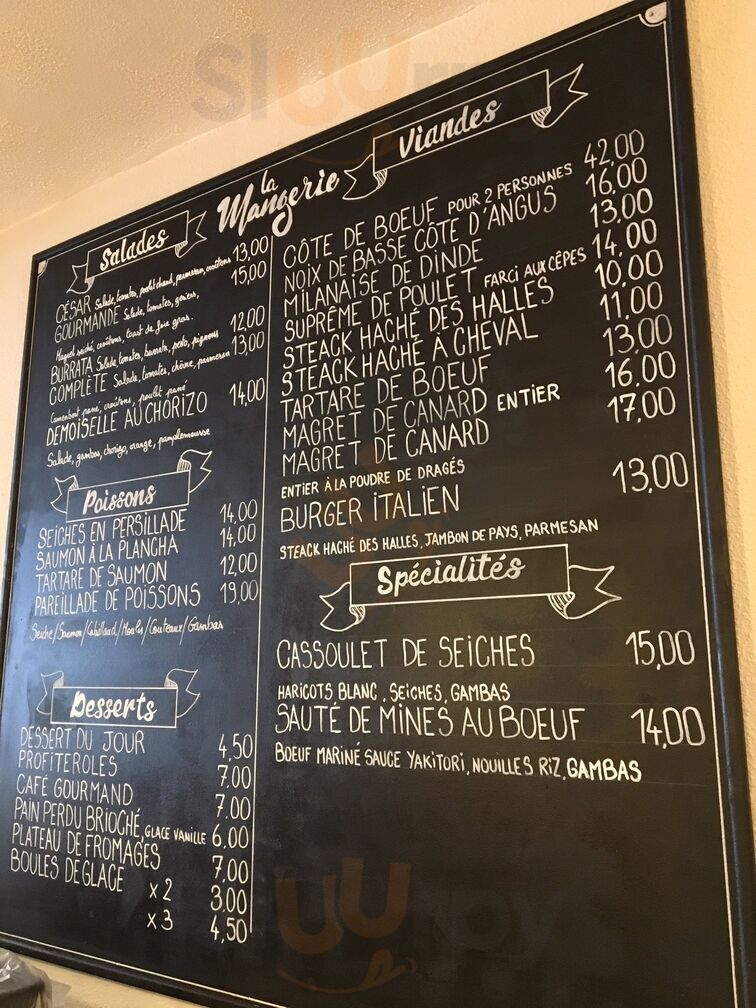 la
Mangerie
Salades
CÉSAR Salade, tomates, poulet chaud, parmesan, croûtons 13,00
GOURMANDE Salade, tomates, gésiers, 15,00
Magret séché, croûtons, toast de foie gras.
BURRATA Salade, tomates, burrata, pesto, pignons 12,00
COMPLÈTE Salade, tomates, chèvre, parmesan 13,00
Camembert pané, croûtons, poulet pané
DEMOISELLE AU CHORIZO 14,00
Salade, gambas, chorizo, orange, pamplemousse
Poissons
SEICHES EN PERSILLADE 14,00
SAUMON À LA PLANCHA 14.00
TARTARE DE SAUMON 12,00
PAREILLADE DE POISSONS 19,00
Seiche/Saumon/Cabillaud/Moules/Couteaux/Gambas
Desserts
DESSERT DU JOUR 4,50
PROFITEROLES 7,00
CAFÉ GOURMAND 7.00
PAIN PERDU BRIOCHÉ, GLACE VANILLE 6,00
PLATEAU DE FROMAGES 7,00
BOULES DE GLACE x 2 3,00
x 3 4,50
Viandes
CÔTE DE BOEUF POUR 2 PERSONNES 42,00
NOIX DE BASSE CÔTE D'ANGUS 16,00
MILANAISE DE DINDE 13,00
SUPRÊME DE POULET FARCI AUX CÊPES 14,00
STEACK HACHÉ DES HALLES 10,00
STEACK HACHÉ À CHEVAL 11,00
TARTARE DE BOEUF 13,00
MAGRET DE CANARD ENTIER 16,00
MAGRET DE CANARD 17,00
ENTIER À LA POUDRE DE DRAGÉS
BURGER ITALIEN 13,00
STEACK HACHÉ DES HALLES, JAMBON DE PAYS, PARMESAN
Spécialités
CASSOULET DE SEICHES 15,00
HARICOTS BLANC, SEICHES, GAMBAS
SAUTÉ DE MINES AU BOEUF 14,00
BOEUF MARINÉ SAUCE YAKITORI, NOUILLES RIZ, GAMBAS